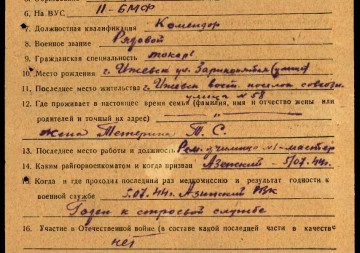 6. На ВУС II-БМФ
7. Должностная квалификация Комендор
8. Военное звание Рядовой
9. Гражданская специальность токарь
10. Место рождения г. Ижевск ул.
11. Последнее место жительства г. Ижевск вост. поселок
улица № 58
12. Где проживает в настоящее время семья (фамилия, имя и отчество жены или
родителей и точный их адрес)
жена Т. С.
13. Последнее место работы и должность Рем. училище №1 - мастер
14. Каким райгорвоенкоматом и когда призван Азинский - 5/07.44г.
15. Когда и где проходил последний раз медкомиссию и результат годности к
военной службе 5.07.44г. Азинский РВК
Годен к строевой службе
16. Участие в Отечественной войне (в составе какой последней части в качестве
нет